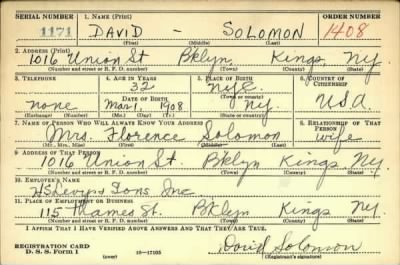 SERIAL NUMBER 1. NAME (Print) ORDER NUMBER
1171 DAVID - SOLOMON 1408
(First) (Middle) (Last)
2. ADDRESS (Print)
1016 Union St Bklyn, Kings, NY.
(Number and street or R. F. D. number) (Town) (County) (State)
3. TELEPHONE 4. AGE IN YEARS 5. PLACE OF BIRTH 6. COUNTRY OF CITIZENSHIP
32 NYC
DATE OF BIRTH
none Mar. 1 1908 NY. USA
(Exchange) (Number) (Mo.) (Day) (Yr.) (State or country)
7. NAME OF PERSON WHO WILL ALWAYS KNOW YOUR ADDRESS 8. RELATIONSHIP OF THAT PERSON
Mrs. Florence Solomon wife
(Mr., Mrs., Miss) (First) (Middle) (Last)
9. ADDRESS OF THAT PERSON
1016 Union St. Bklyn Kings NY
(Number and street or R. F. D. number) (Town) (County) (State)
10. EMPLOYER'S NAME
Sons Inc
11. PLACE OF EMPLOYMENT OR BUSINESS
115 Thames St. Bklyn Kings NY
(Number and street or R. F. D. number) (Town) (County) (State)
I AFFIRM THAT I HAVE VERIFIED ABOVE ANSWERS AND THAT THEY ARE TRUE.
REGISTRATION CARD David Solomon
D. S. S. Form 1 (over) 16-17105 (Registrant's signature)